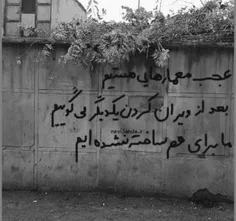 عجب معمارهایی هستیم
بعد از ویران کردن یکدیگر می گوییم
ما برای هم ساخته نشده ایم